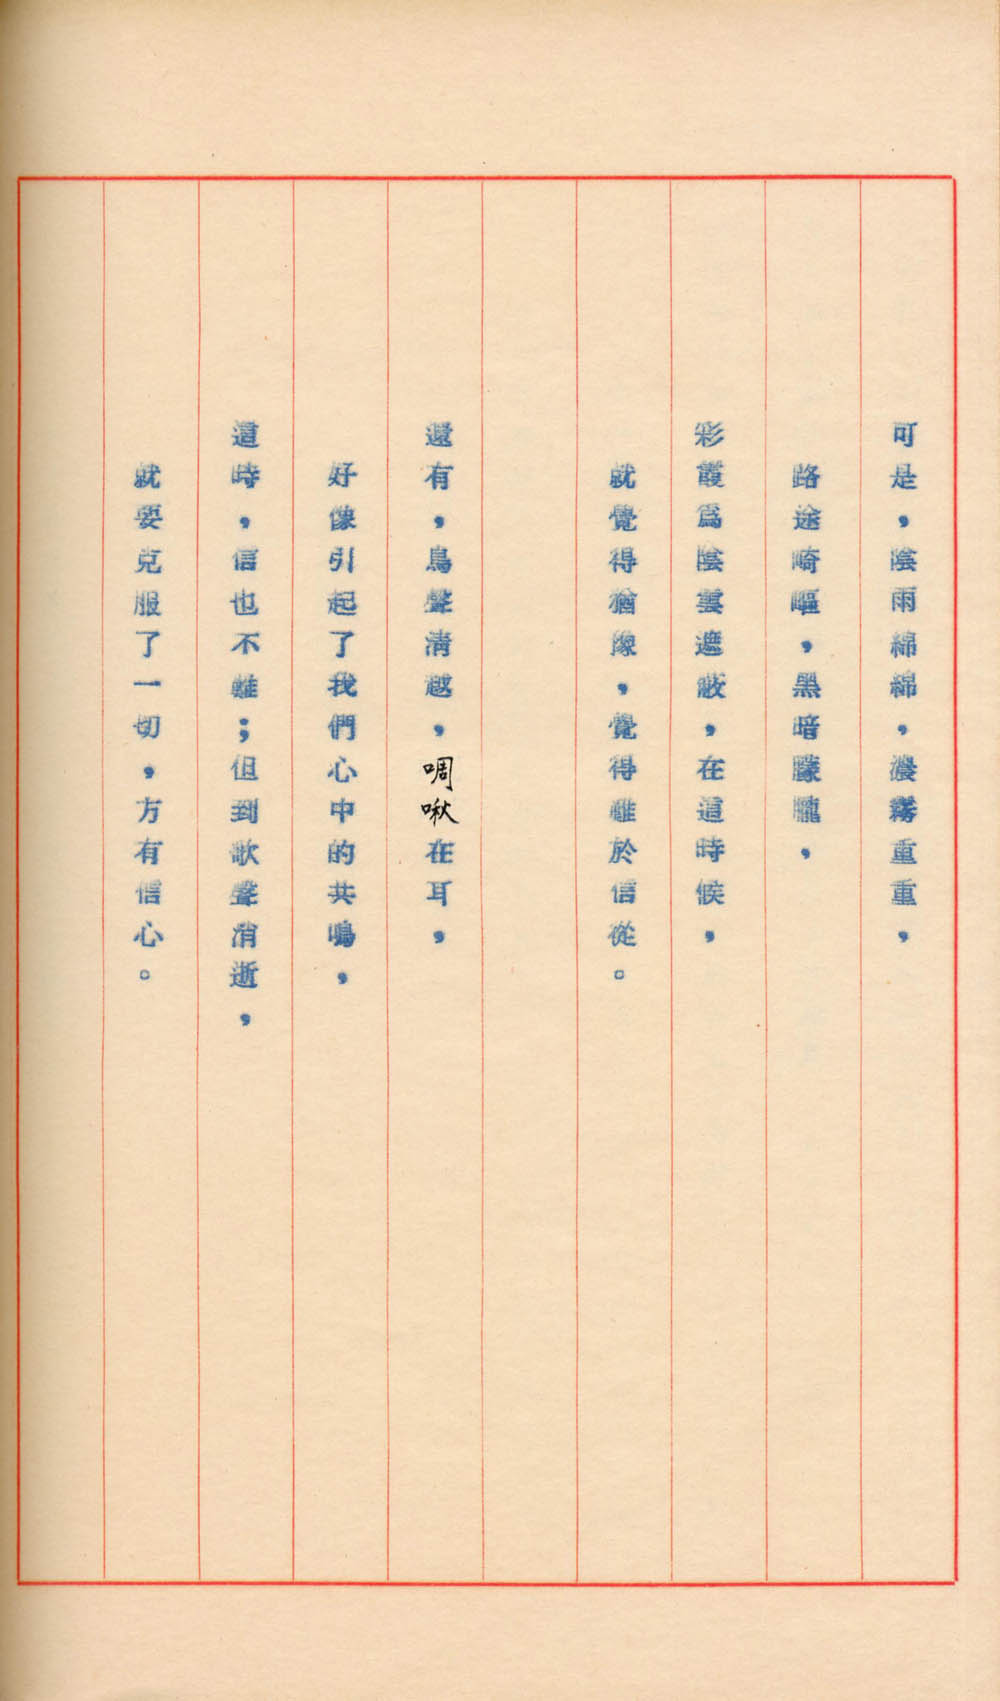 可是，陰雨綿綿，濃霧重重，
路途崎嶇，黑暗朦朧，
彩霞爲陰雲遮蔽，在這時候，
就覺得猶豫，覺得難於信從。
還有，鳥聲清越，啁啾在耳，
好像引起了我們心中的共鳴，
這時，信也不難；但到歌聲消逝，
就要克服了一切，方有信心。